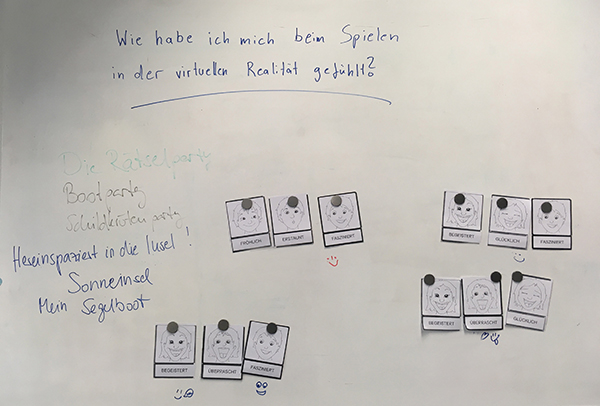 Wie habe ich mich beim Spielen
in der virtuellen Realität gefühlt?
Die Rätselparty
Bootparty
Schildkrötenparty
Hereinspaziert in die Insel!
Sonneinsel
Mein Segelboot
FRÖHLICH ERSTAUNT FASZINIERT
BEGEISTERT GLÜCKLICH FASZINIERT
BEGEISTERT ÜBERRASCHT GLÜCKLICH
BEGEISTERT ÜBERRASCHT FASZINIERT